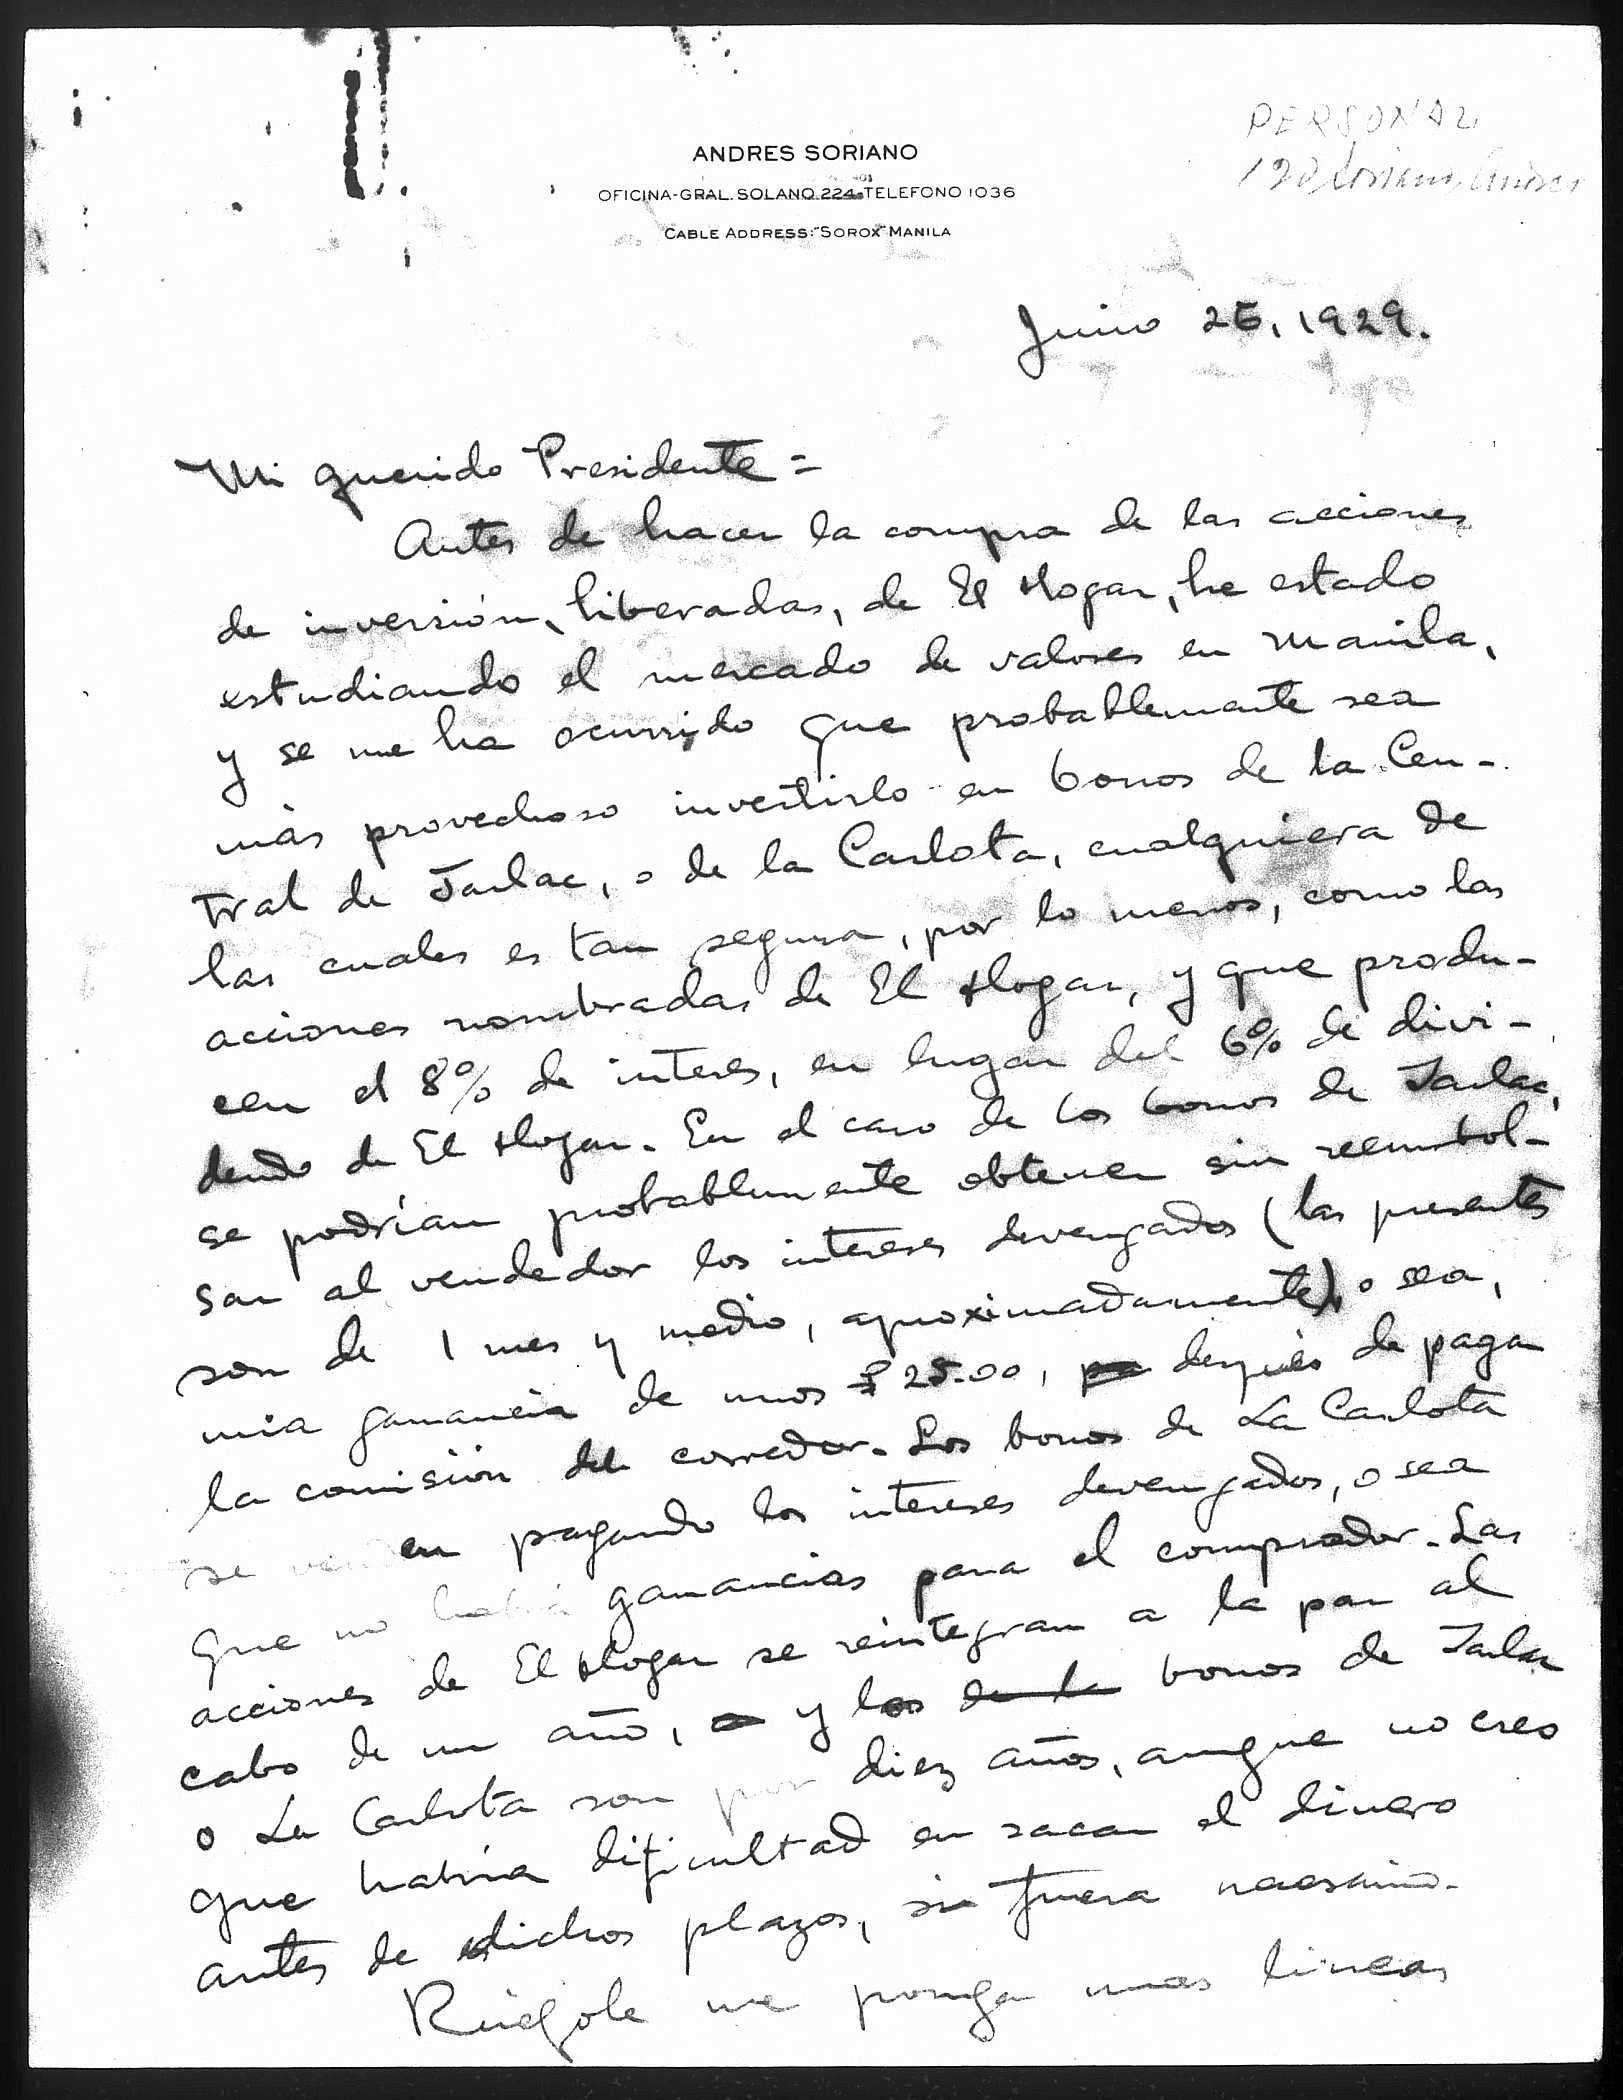 PERSONAL
ANDRES SORIANO
OFICINA-GRAL. SOLANO 224-TELEFONO 1036
CABLE ADDRESS: "SOROX" MANILA
Junio 25, 1929.
Mi querido Presidente =
Antes de hacer la compra de las acciones
de inversión, liberadas, de El Hogar, he estado
estudiando el mercado de valores en Manila,
y se me ha ocurrido que probablemente sea
más provechoso invertirlo en bonos de la Cen-
tral de Tarlac, o de la Carlota, cualquiera de
las cuales es tan segura, por lo menos, como las
acciones nombradas de El Hogar, y que produ-
cen el 8% de interes, en lugar del 6% de divi-
dendo de El Hogar. En el caso de los bonos de Tarlac,
se podrían probablemente obtener sin reembol-
sar al vendedor los intereses devengados (las presentes
son de 1 mes y medio, aproximadamente), o sea,
una ganancia de unos ₱25.00, despues de pagar
la comisión del corredor. Los bonos de La Carlota
se venden pagando los intereses devengados, o sea
que no habrá ganancias para el comprador. Las
acciones de El Hogar se reintegran a la par al
cabo de un año, y los bonos de Tarlac
o La Carlota son por diez años, aunque no creo
que habría dificultad en sacar el dinero
antes de dichos plazos, si fuera necesario.
Ruégole me ponga unas lineas